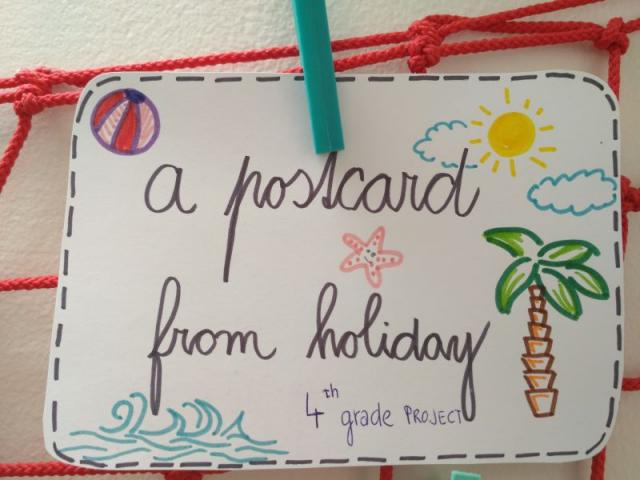 a postcard
from holiday
4th grade PROJECT